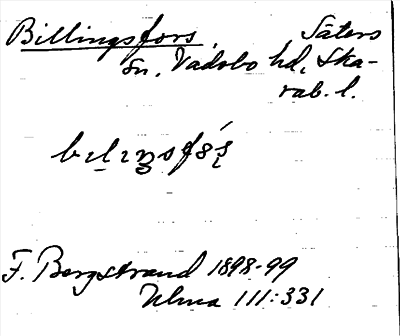 Billingsfors, Säters
sn. Vadsbo hd, Ska-
rab. l.
F. Bergstrand 1898-99
Ulma 111:331